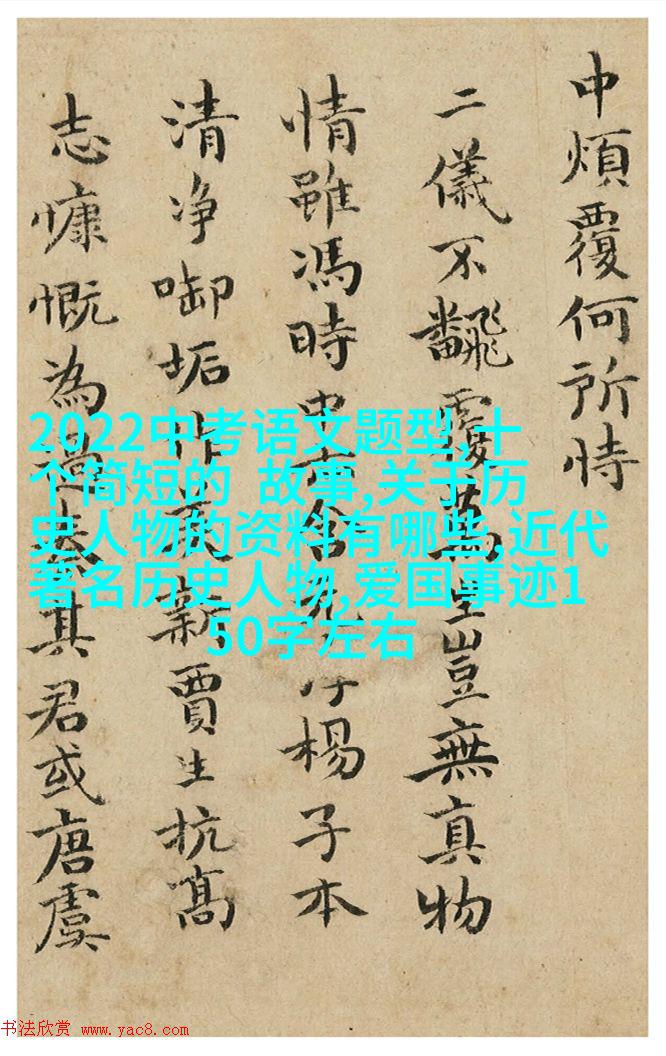 中煩覆何所恃
二儀不飜覆萬生豈無真物
情雖馮時含楊子本
清净啣垢作新賈生抗高
志慷慨為過秦其君或唐虞
2022中考语文题型,十
个简短的 故事,关于历
史人物的资料有哪些,近代
著名历史人物,爱国事迹1
50字左右
书法欣赏 www.yac8.com